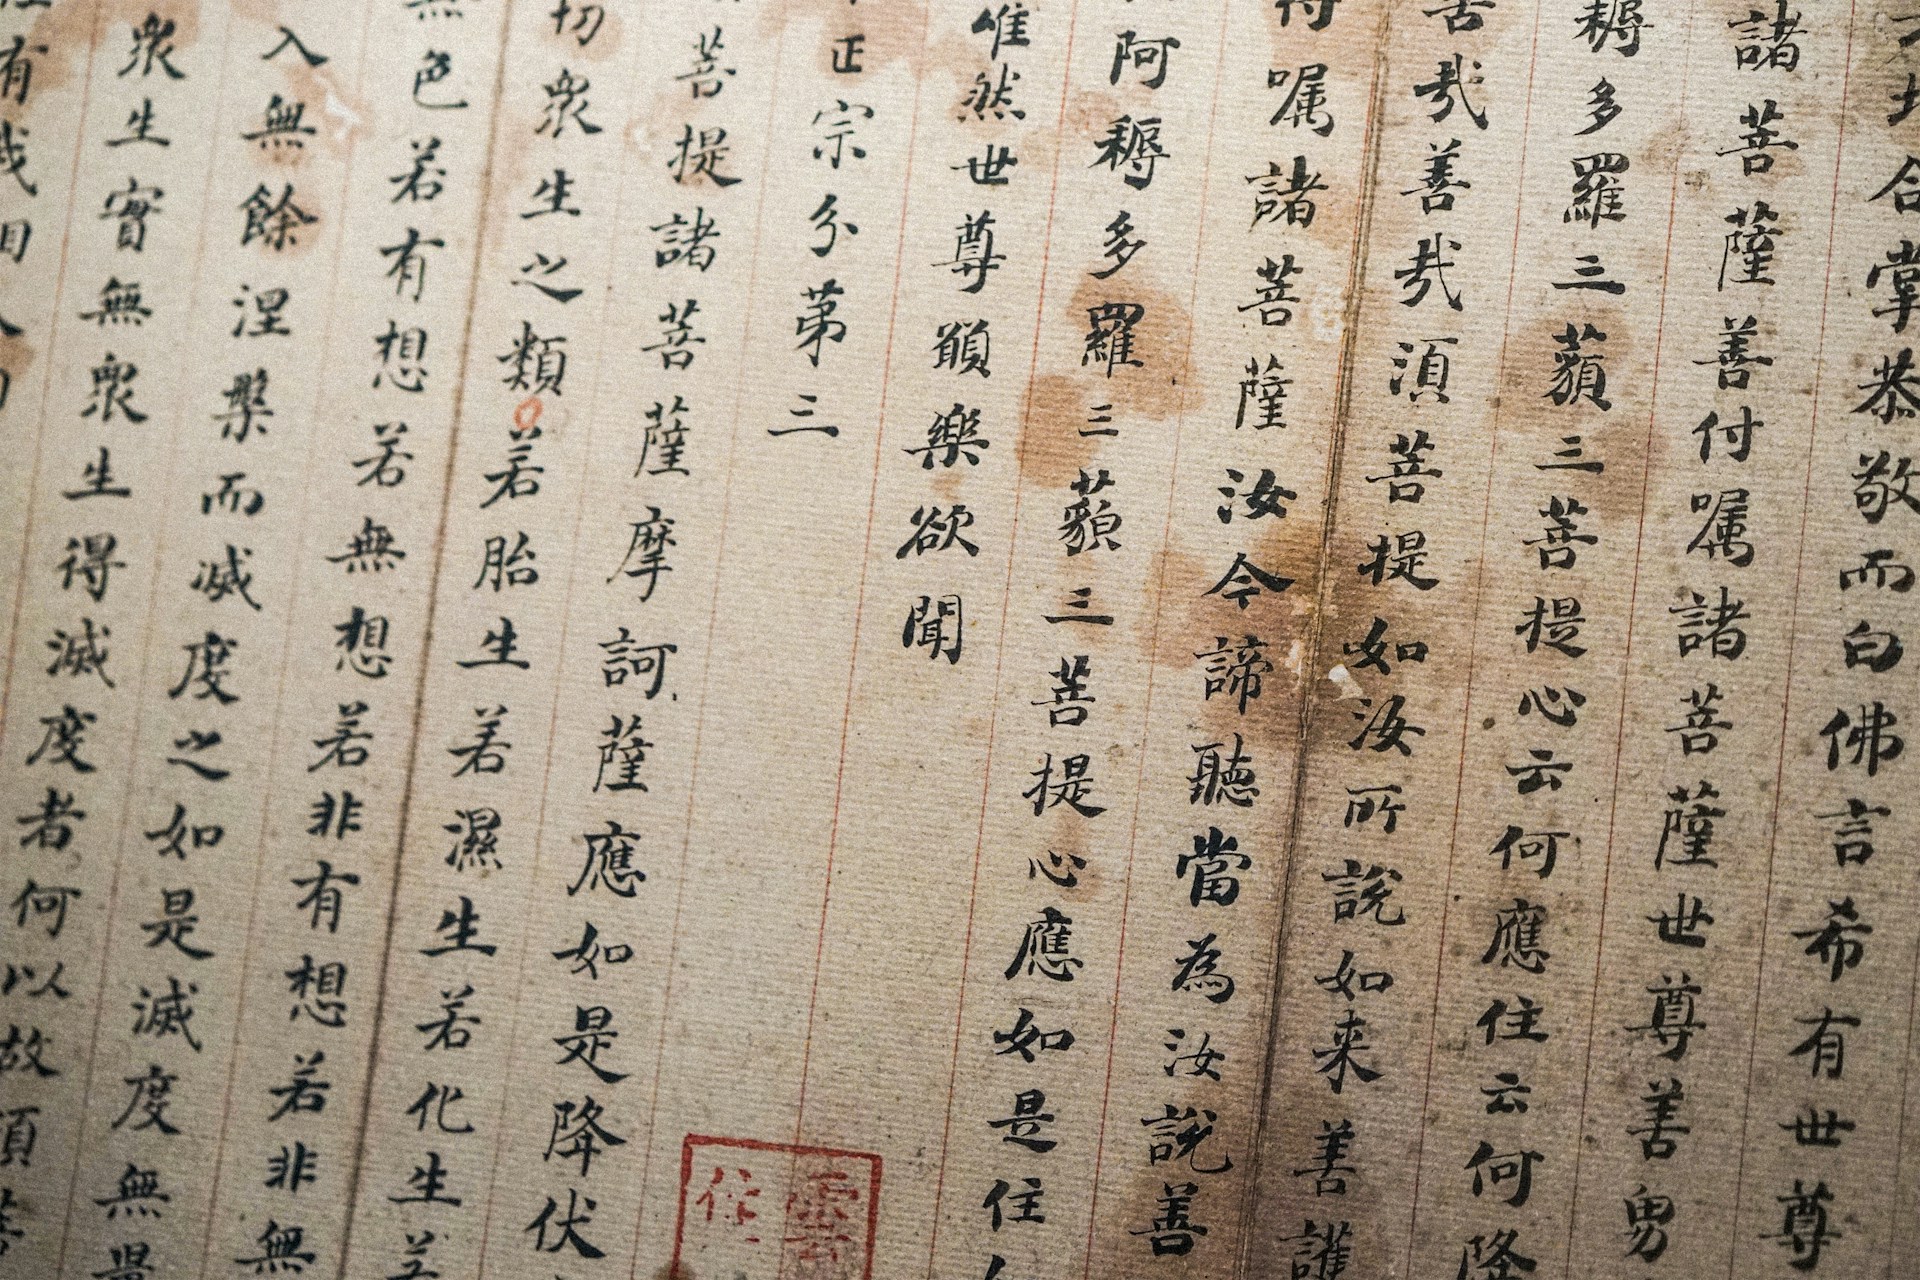 合掌恭敬而白佛言希有世尊
諸菩薩善付嘱諸菩薩世尊善男
耨多羅三藐三菩提心云何應住云何降
哉善哉須菩提如汝所說如来善護
嘱諸菩薩汝今諦聽當為汝說善
阿耨多羅三藐三菩提心應如是住
唯然世尊願樂欲聞
正宗分第三
菩提諸菩薩摩訶薩應如是降伏
切衆生之類若胎生若濕生若化生若
色若有想若無想若非有想若非無
入無餘涅槃而滅度之如是滅度無量
衆生實無衆生得滅度者何以故須菩
有我相人
雲
住